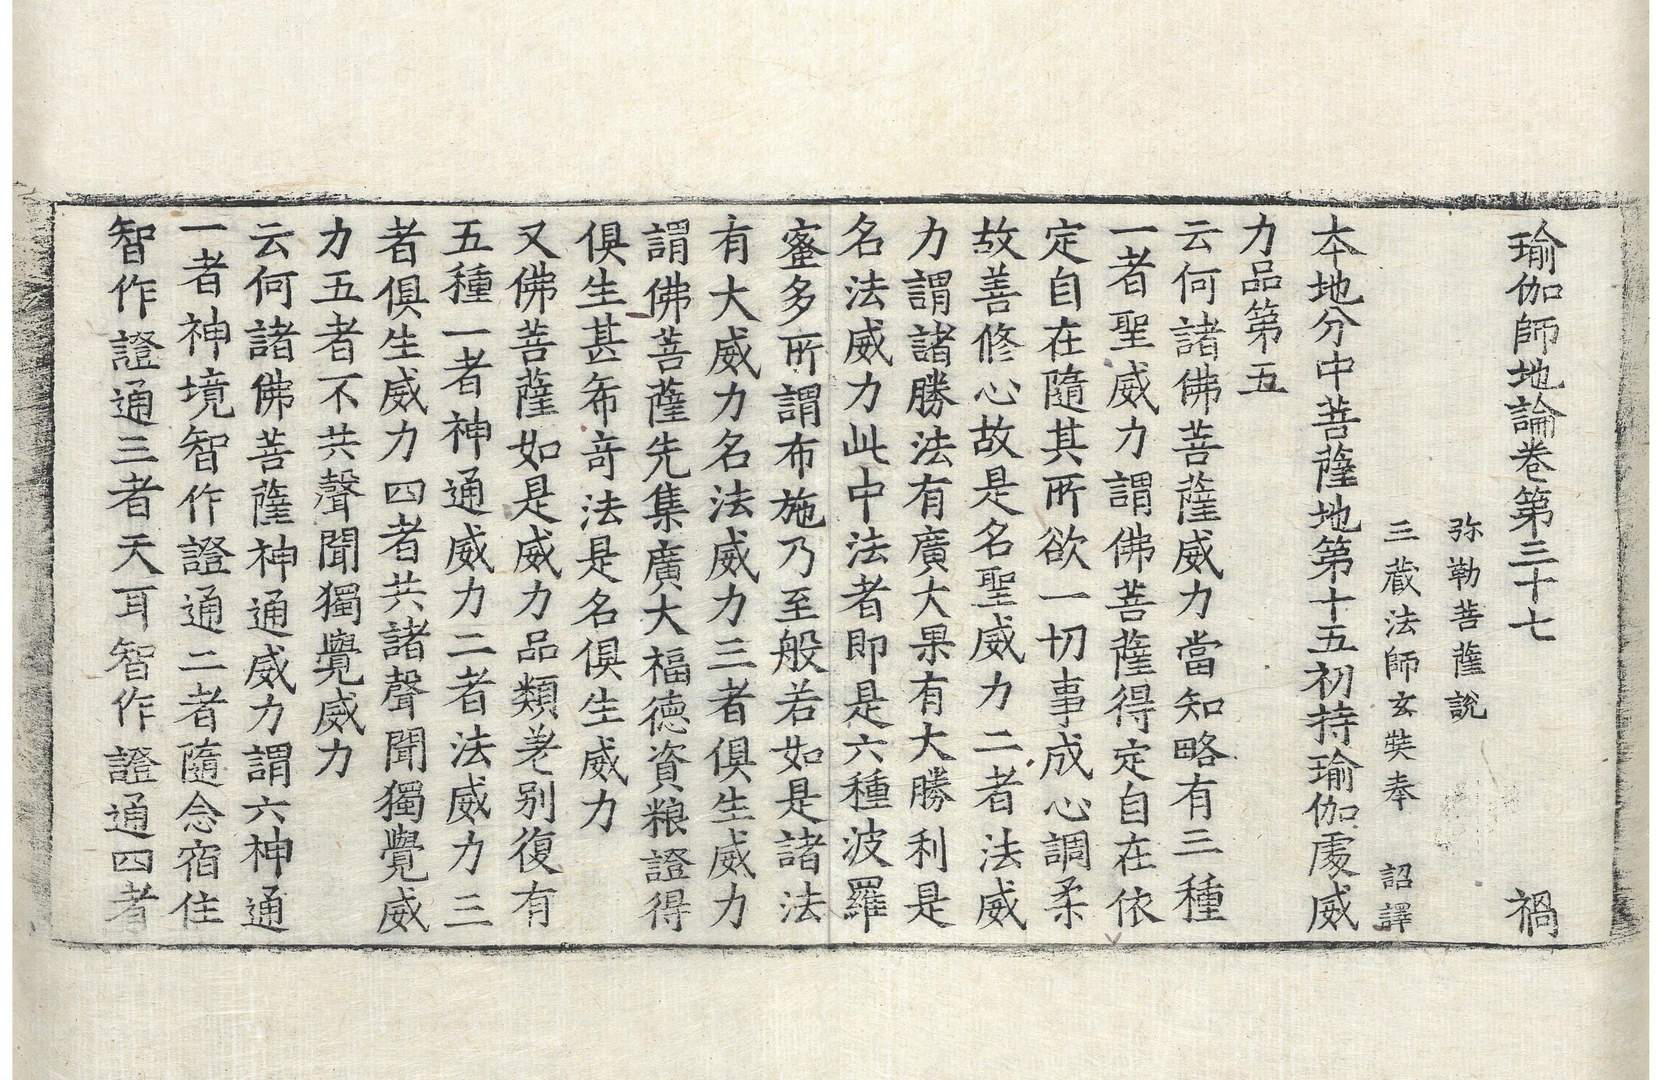 瑜伽師地論卷第三十七 禍
弥勒菩薩說
三藏法師玄奘奉 詔譯
本地分中菩薩地第十五初持瑜伽處威
力品第五
云何諸佛菩薩威力當知略有三種
一者聖威力謂佛菩薩得定自在依
定自在隨其所欲一切事成心調柔
故善修心故是名聖威力二者法威
力謂諸勝法有廣大果有大勝利是
名法威力此中法者即是六種波羅
蜜多所謂布施乃至般若如是諸法
有大威力名法威力三者俱生威力
謂佛菩薩先集廣大福德資粮證得
俱生甚希奇法是名俱生威力
又佛菩薩如是威力品類差別復有
五種一者神通威力二者法威力三
者俱生威力四者共諸聲聞獨覺威
力五者不共聲聞獨覺威力
云何諸佛菩薩神通威力謂六神通
一者神境智作證通二者隨念宿住
智作證通三者天耳智作證通四者